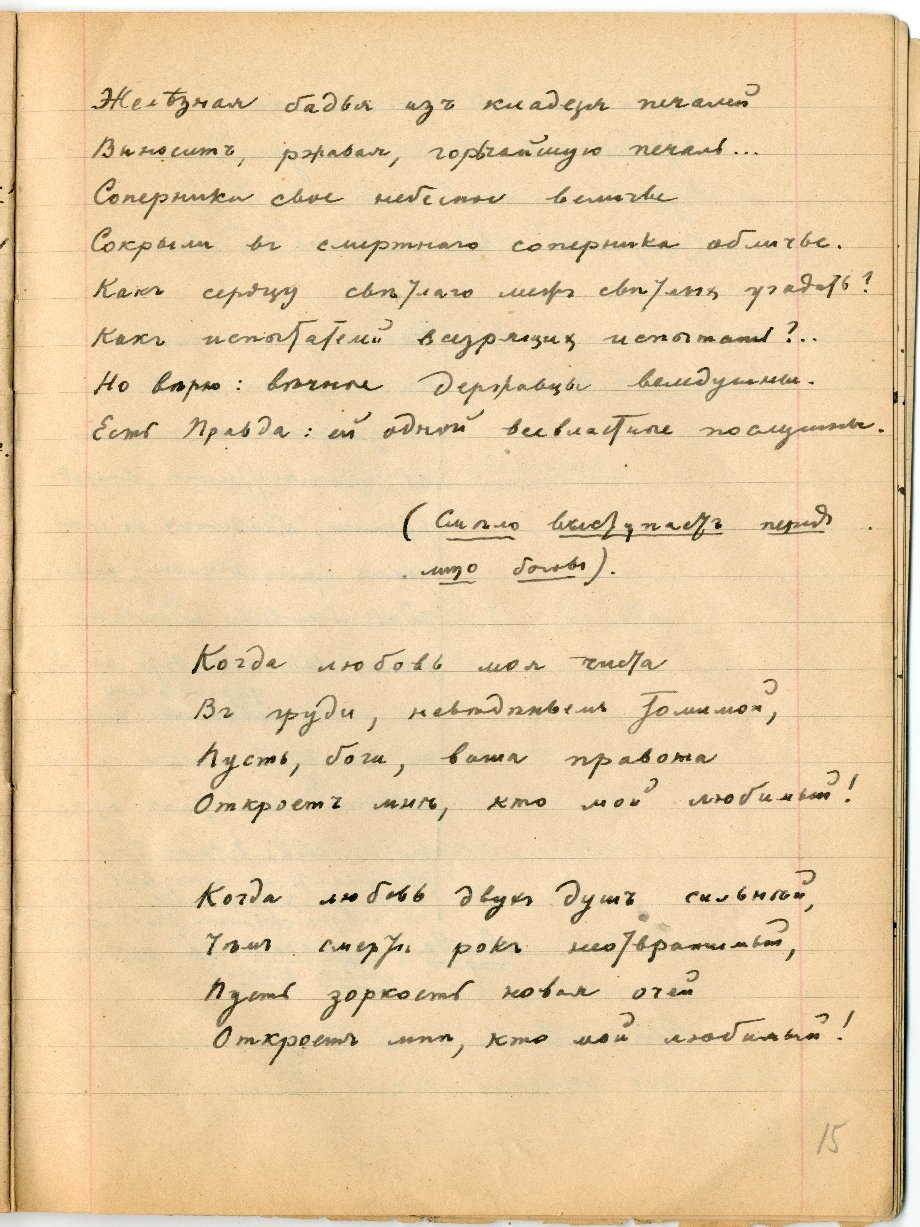 Желѣзная бадья изъ кладезя печалей
Выноситъ, ржавая, горчайшую печаль...
Соперники свое небесное величье
Сокрыли въ смертнаго соперника обличье.
Какъ сердцу свѣтлаго межъ свѣтлыхъ угадать?
Какъ испытателей всезрящихъ испытать?..
Но вѣрю: вѣчные державцы велидушны.
Есть Правда: ей одной всевластные послушны.
(Смѣло выступаетъ передъ
лицо боговъ).
Когда любовь моя чиста
Въ груди, невѣдѣньемъ томимой,
Пусть, боги, ваша правота
Откроетъ мнѣ, кто мой любимый!
Когда любовь двухъ душъ сильнѣй,
Чѣмъ смерти рокъ неотвратимый,
Пусть зоркость новая очей
Откроетъ мнѣ, кто мой любимый!
15